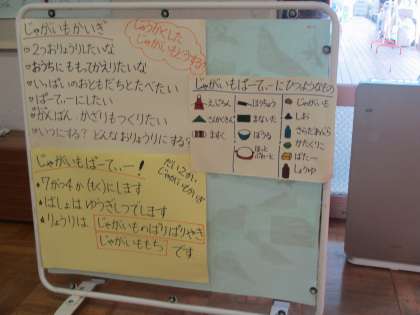 じゃがいもかいぎ
じゅうかくした
じゃがいもどうする?
♡2つおりょうりしたいな
♡おうちにももってかえりたいな
♡いっぱいのおともだちとたべたい
♡ぱーてぃーにしたい
♡かんばん・かざりもつくりたい
♡いつにする?どんなおりょうりにする?
じゃがいもぱーてぃーにひつようなもの
えぷろん
さんかくきん
ますく
ほうちょう
まないた
ぼうる
ほっと
ぷれーと
じゃがいも
しお
さらだあぶら
かたくりこ
ばたー
しょうゆ
じゃがいもぱーてぃー!
だいにかい
じゃがいもかいぎ
♦7がつ4か(もく)にします
♦ばしょはゆうぎしつでします
♦りょうりは じゃがいものぱりぱりやき
じゃがいももち です